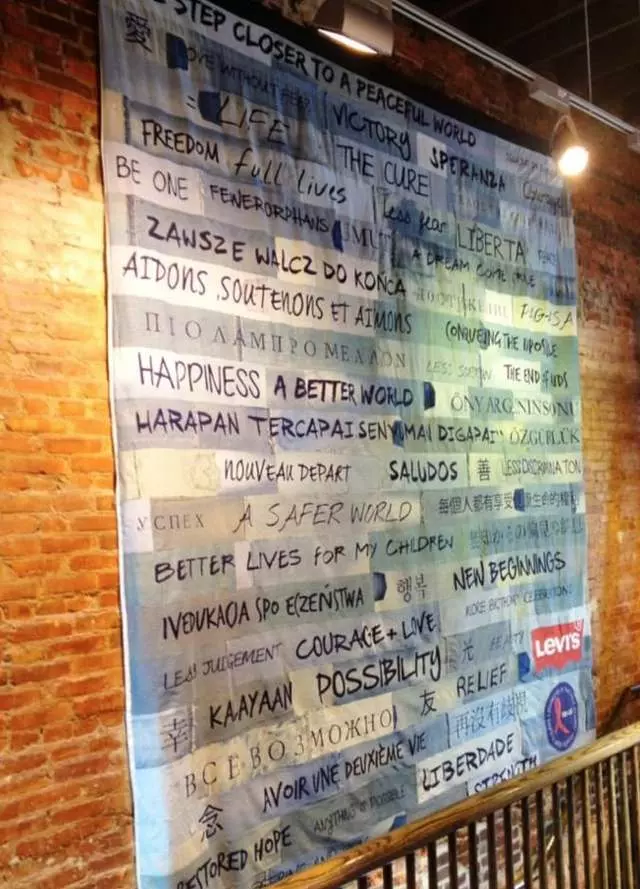 STEP CLOSER TO A PEACEFUL WORLD
愛 LOVE WITHOUT FEAR
= LIFE VICTORY SPERANZA
FREEDOM full lives THE CURE
BE ONE FEWERORPHANS less fear LIBERTA PEACE
ZAWSZE WALCZ DO KOŃCA A DREAM COME TRUE
AIDONS, SOUTENONS ET AIMONS PAG-ASA
ΠΙΟ ΛΑΜΠΡΟ ΜΕΛΛΟΝ CONQUERING THE
HAPPINESS A BETTER WORLD LESS THE END of AIDS
HARAPAN TERCAPAI SENYUMAN DIGAPAI ÖZGÜRLÜK
NOUVEAU DEPART SALUDOS 善 LESS DISCRIMINATION
УСПЕХ A SAFER WORLD 每個人都有享受
BETTER LIVES FOR MY CHILDREN
행복 NEW BEGINNINGS
MORE BIRTHDAY CELEBRATIONS
LESS JUDGEMENT COURAGE + LOVE 光 Levi's
幸 KAAYAAN POSSIBILITY RELIEF
ВСЕ ВОЗМОЖНО 友 再沒有歧視
念 AVOIR UNE DEUXIÈME VIE LIBERDADE
RESTORED HOPE ANYTHING IS POSSIBLE STRENGTH